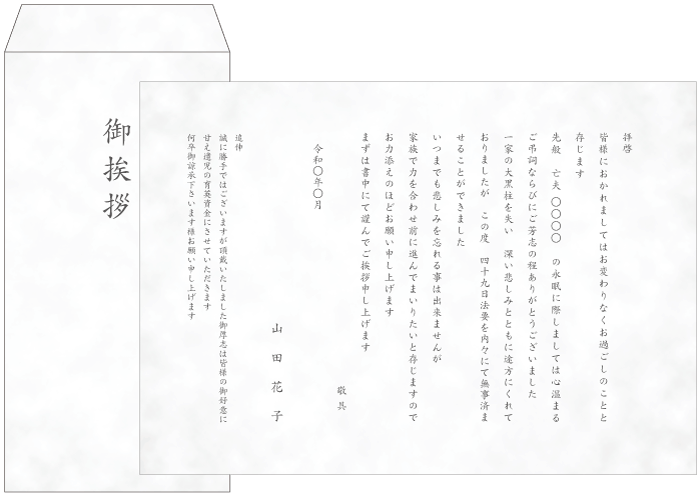 御挨拶
拝啓
皆様におかれましてはお変わりなくお過ごしのことと
存じます
先般　亡夫　〇〇〇〇　の永眠に際しましては心温まる
ご弔詞ならびにご芳志の程ありがとうございました
一家の大黒柱を失い　深い悲しみとともに途方にくれて
おりましたが　この度　四十九日法要を内々にて無事済ま
せることができました
いつまでも悲しみを忘れる事は出来ませんが
家族で力を合わせ前に進んでまいりたいと存じますので
お力添えのほどお願い申し上げます
まずは書中にて謹んでご挨拶申し上げます
敬具
令和〇年〇月
山田花子
追伸
誠に勝手ではございますが頂戴いたしました御厚志は皆様の御好意に
甘え遺児の育英資金にさせていただきます
何卒御諒承下さいます様お願い申し上げます